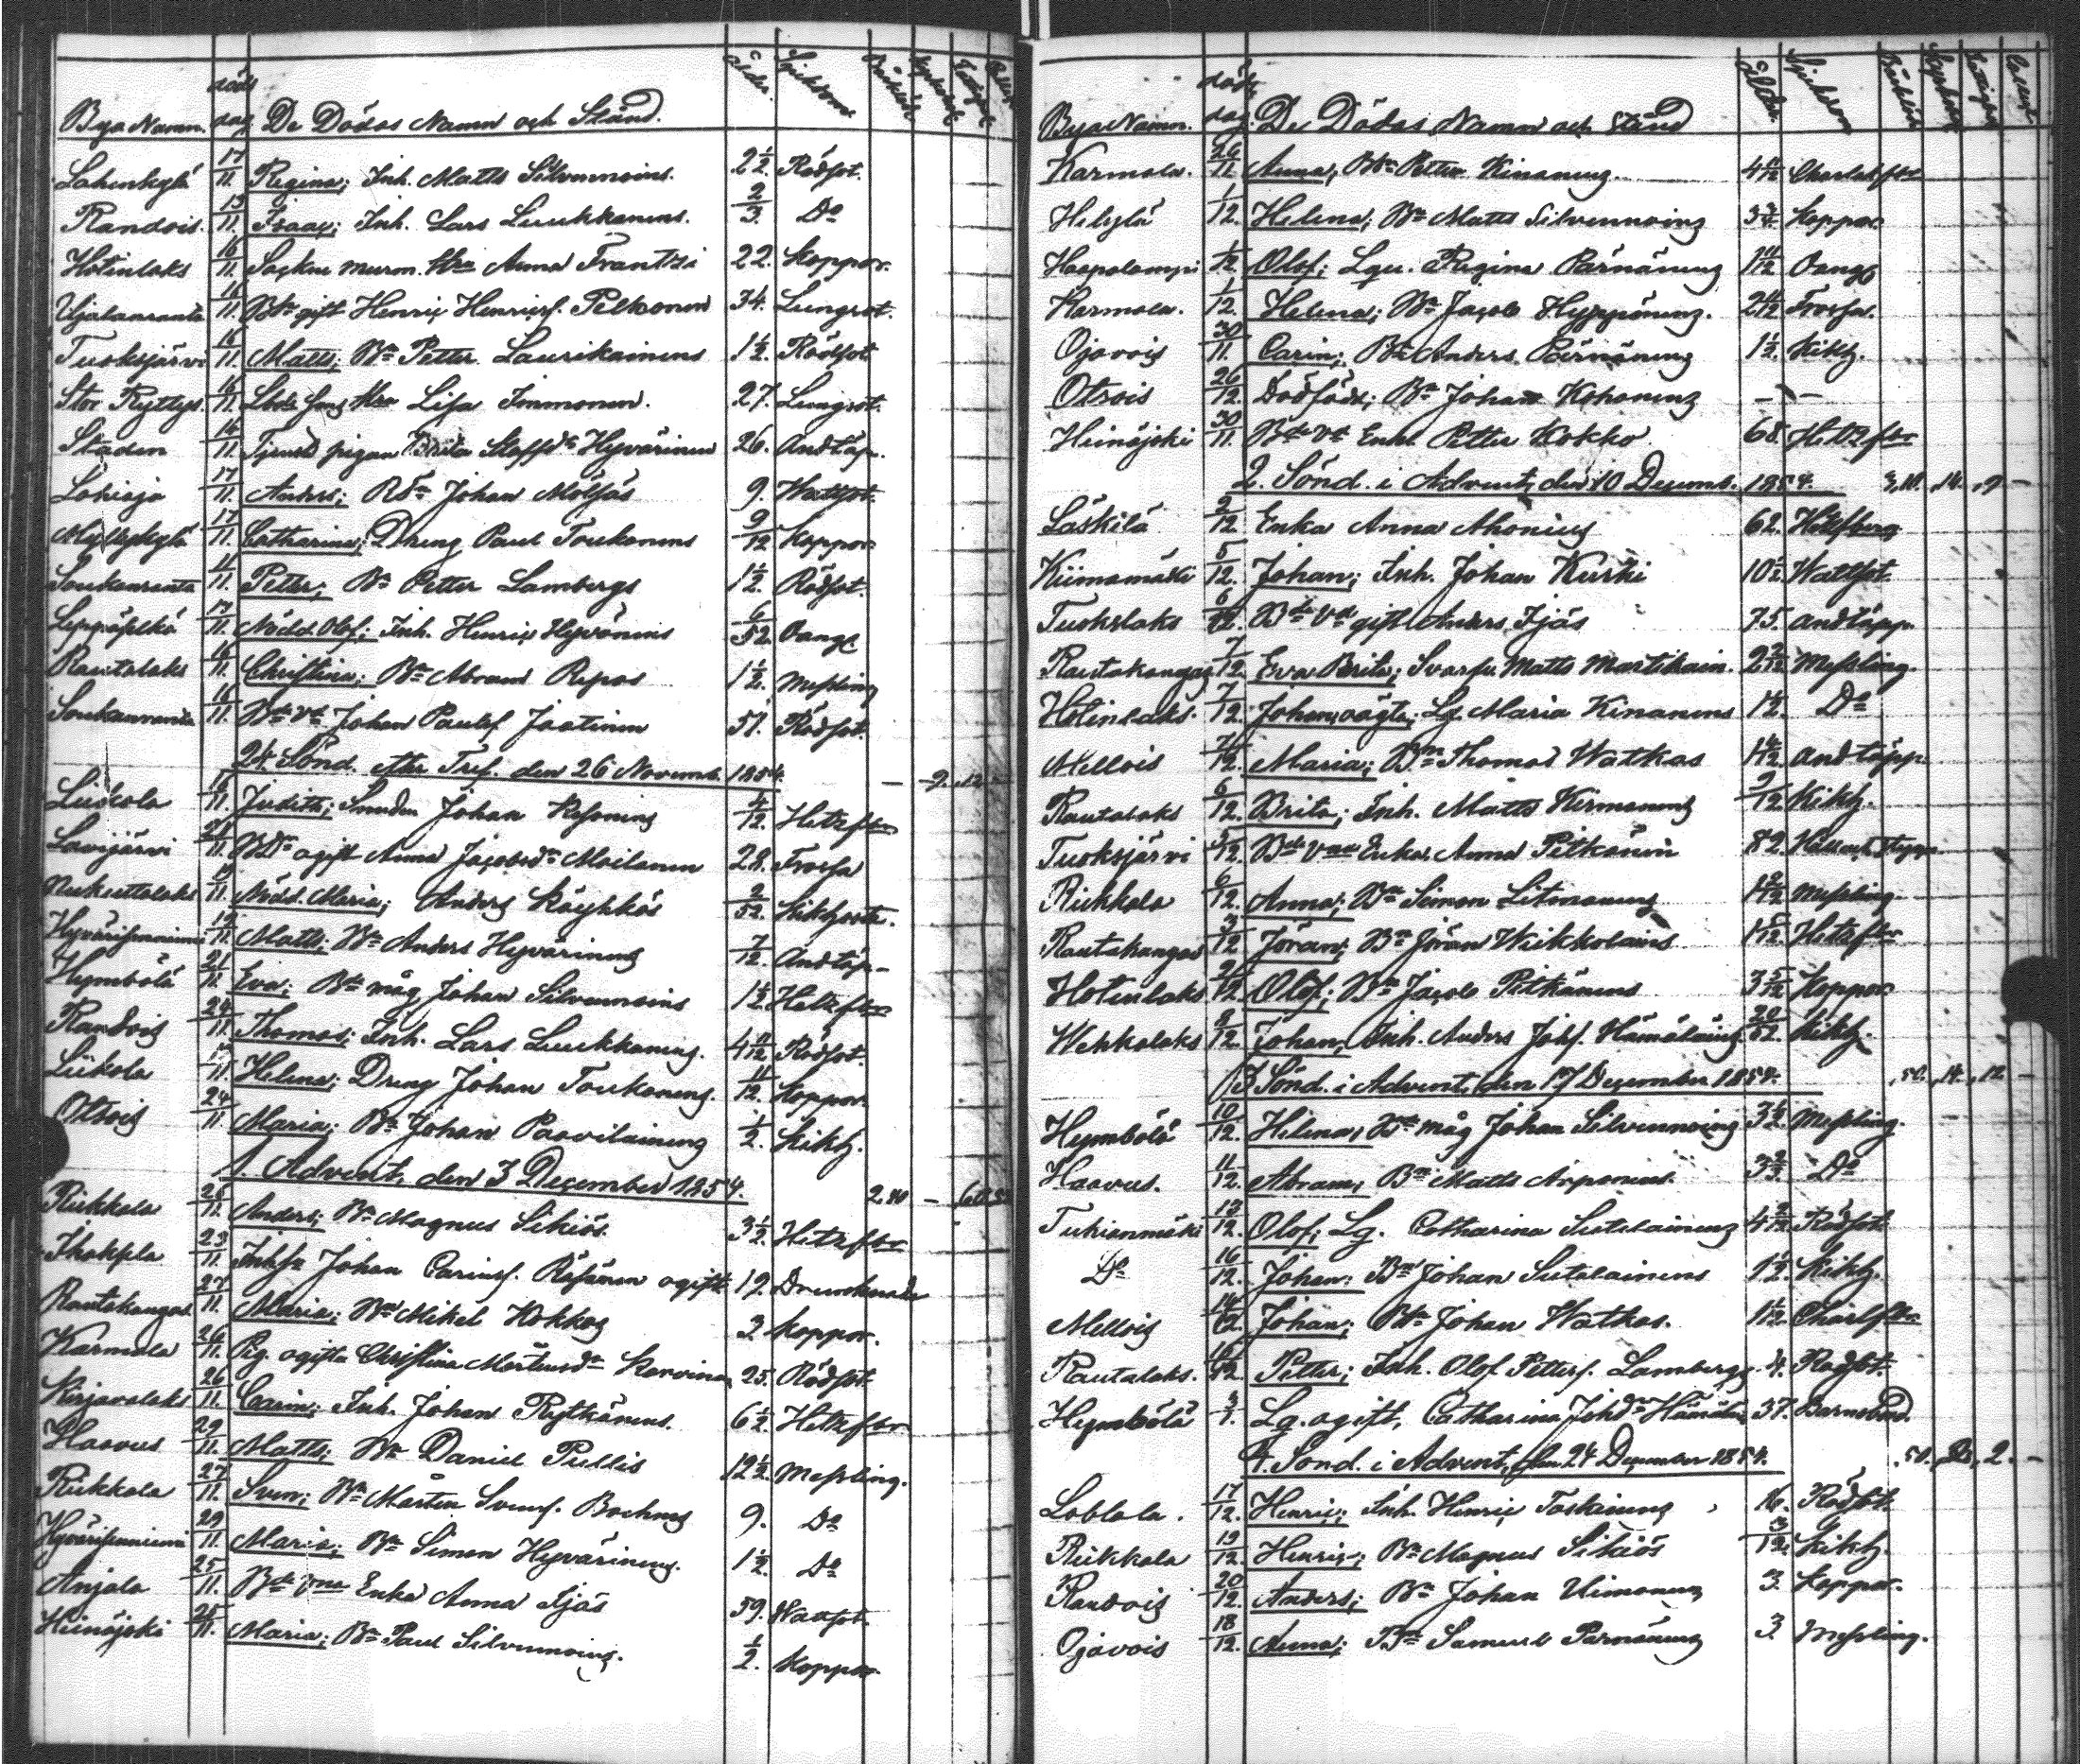 Bya Namn. döds dag De Dödas Namn och Stånd. ålder. Sjukdom
Lahenkylä 17/11. Regina; Inh. Matts Silvennoins. 2 1/2. Rödsot.
Randois. 13/11. Isaac; Inh. Lars Luukkanens. 2/3. Do
Hotinlaks 16/11. Sockne murm. Hra Anna Frantzi 22. Koppor.
16/11. Bde gift Henric Henricss. Pelkonen 34. Lungsot.
Tuoksjärvi 16/11. Matts; Bn Petter Laurikainens 1 1/2. Rödsot
Stor Rytty. 16/11. Hra Lisa Immonen. 27. Lungsot.
Staden 14/11. pigan Brita Staffsdr Hyvärinen 26. Andtäp.
Lohioja 17/11. Anders; Johan Mölsäs 9. Wattsot.
Myllykylä 17/11. Catharina; Dreng Paul Toukonens 9/12 Koppor
Soukanranta 11/11. Petter; Bn Petter Lambergs 1 1/2. Rödsot.
Leppäselkä 17/11. Nödd. Olof; Inh. Henric Hyvönens 6/52. Oangt.
Rautalaks 16/11. Christina; Bn Abram Repos 1 1/2. Messling
Soukanranta 16/11. Johan Paulss. Jaatinen 57. Rödsot.
24. Sönd. efter Tref. den 26 Novemb. 1854. — 9. 12
Liikola 18/11. Judith; Smeden Johan 4/12. Hetzfbr
Lavijärvi 21/11. ogift Anna Jacobsdr Moilanen 28. Frossa
Nukuttalaks 19/11. Nödd. Maria; Anders Käyhkös 2/52. Kikhosta.
Hyvärisenniemi 19/11. Matts; Bn Anders Hyvärinens 7/12. Andtäp.
Hymbölä 21/11. Eva; Bde måg Johan Silvennoins 1 1/2. Hetzfbr
Randois 24/11. Thomas; Inh. Lars Luukkanens. 4 11/12 Rödsot.
Liikola 11. Helena; Dreng Johan Toukonens. 11/12. Koppor.
Otsois 24/11 Maria; Bn Johan Paavilainens 1/2. Kikh.
1. Advent, den 3 December 1854. 2.
Riekkala 26/11. Anders; Bn Magnus Sikiös. 3 1/2. Hetzfbr
23/11. Johan Carinss. Räsänen ogift 19. Drunknade
Rautakangas 27/11. Maria; Bn Mikel Kokkos 3 Koppor.
Karmala 26/11. Pig. ogifta Christina Mårtensdr Korvinen 25. Rödsot
Kirjavalaks 26/11. Carin; Inh. Johan Rytkönens. 6 1/2. Hetzfbr
Haavus 29/11. Matts; Bn Daniel Pullis 12 1/2. Messling.
Riekkala 27/11. Sven; Bn Mårten Svenss. Bochms 9. Do
Hyvärisenniemi 29/11. Maria; Bn Simon Hyvärinens. 1 1/2. Do
Anjala 25/11. Enka Anna Ijäs 59. Wattsot.
Heinäjoki 25/11. Maria; Bn Paul Silvennoins. 1/2. Koppor
Bya Namn. döds dag De Dödas Namn och stånd ålder. Sjukdom
Karmala. 26/11 Anna; Bde Petter Kinanens. 4 11/12 Charlaksfbr
Helylä 1/12. Helena; Bn Matts Silvennoins 3 3/4. Koppor.
Haapalampi 1/12. Olof; Lqv. Regina Pärnänens 1 11/12 Oangt
Karmala. 1/12. Helena; Bn Jacob Hyppönens. 2 11/12 Frossa.
Ojavois 30/11. Carin; Bn Anders Pärnänens 1 1/2. Kikh.
Otsois 26/12. Dödfödd; Bn Johan Kohonens — —
Heinäjoki 30/11. Enkl. Petter Kokko 68. Hetzfbr
2. Sönd. i Advent, den 10 Decemb. 1854. 14. 9 —
Läskilä 2/12. Enka Anna Ahonius 62. Hetsfbr
Kiimamäki 5/12. Johan; Inh. Johan Kurki 10 1/2. Wattsot
Tuokslaks 6/12. gift Anders Ijäs 75. Andtäpp.
Rautakangas 7/12. Eva Brita; Svarfv. Matts Martikain. 2 2/12 Messling.
Hotinlaks. 7/12. Johan, oägta; Lq. Maria Kinanens 1 1/2. Do
Mellois 7/12. Maria; Bn Thomas Watkas 1 4/12. Andtäpp
Rautalaks 6/12. Brita; Inh. Matts Kirmanens 9/12. Kikh.
Tuoksjärvi 12. Enka Anna Pitkänen 82. Håll och Stygn
Riekkala 6/12. Anna; Bn Simon Litmanens Messling.
Rautakangas 3/12 Jöran; Bn Jöran Wiikkolainens Hetzfbr
Hotinlaks 9/12 Olof; Bn Jacob Pitkänens 3 5/12 Koppor
Wehkalaks 9/12. Johan; Inh. Anders Johss. Hämäläins 20/52. Kikh.
3 Sönd. i Advent, den 17 December 1854. 50. 14. 12 —
Hymbölä 10/12. Helena; Bde måg Johan Silvennoins 3 1/2. Messling.
Haavus. 11/12. Abram; Bn Matts Arponens. Do
Tuhianmäki 13/12. Olof; Lq. Catharina Sutelainens Rödsot
Do 16/12. Johan; Bn Johan Sutelainens 1 1/2. Kikh.
Mellois 14/12. Johan; Bn Johan Watkas. 1 1/2. Charlfbr
Rautalaks. 16/12. Petter; Inh. Olof Petterss. Lambergs 4. Rödsot.
Hymbölä Lq. ogift, Catharina Johsdr Hämäläin 37. Barnsbörd.
4. Sönd. i Advent, den 24 December 1854. 50. 2. —
Loblala. 17/12. Henric; Inh. Henric Toskainens 16. Rödsot
Riekkala 19/12. Henric; Bn Magnus Sikiös 3/12. Kikh.
Randois 20/12. Anders; Bn Johan Uimonens 3. Koppor.
Ojavois 18/12. Anna; Bn Samuel Pärnänens 3 Messling.